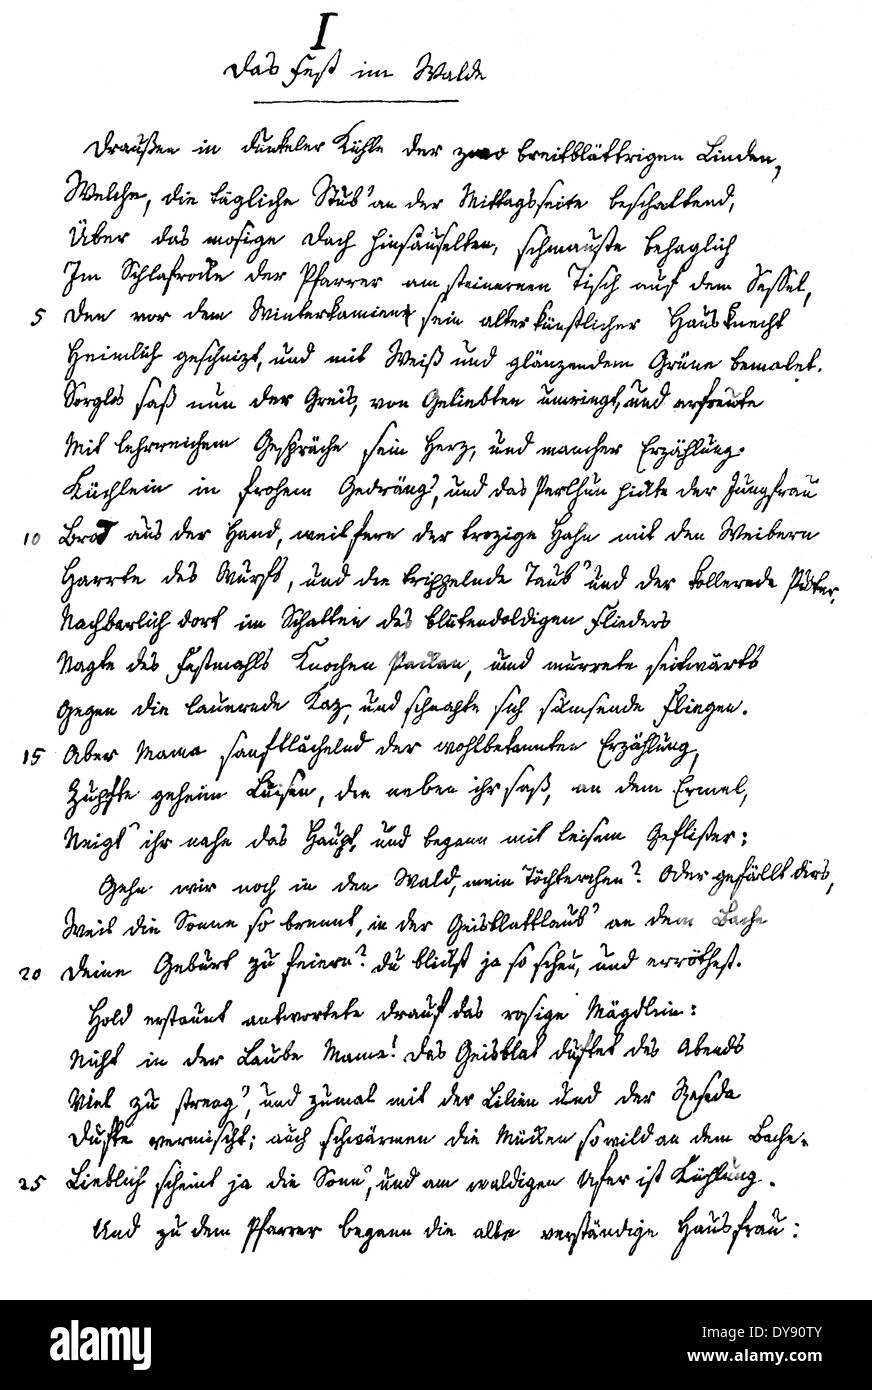 I
Das Fest im Walde
Draußen in dunkeler Kühle der zwo breitblättrigen Linden,
Welche, die tägliche Stub' an der Mittagsseite beschattend,
Über das mosige Dach hinsäuselten, schmauste behaglich
Im Schlafrocke der Pfarrer am steinernen Tisch auf dem Sessel,
5 Den vor dem Winterkamine sein alter künstlicher Hausknecht
Heimlich geschnizt, und mit Weiß und glänzendem Grüne bemalet.
Sorglos saß nun der Greis, von Geliebten umringt, und erfreute
Mit lehrreichem Gespräche sein Herz, und mancher Erzählung.
Küchlein in frohem Gedräng', und das Perlhun pickte der Jungfrau
10 Brot aus der Hand, weil fern der trozige Hahn mit den Weibern
Harrte des Wurfs, und die trippelnde Taub' und der kollerde Puter.
Nachbarlich dort im Schatten des blütendoldigen Flieders
Nagte des Festmahls Knochen Packan, und murrete seitwärts
Gegen die laurende Kaz, und schnapte sich sumsende Fliegen.
15 Aber Mama sanftlächelnd der wohlbekannten Erzählung,
Zupfte geheim Luisen, die neben ihr saß, an dem Ermel,
Neigt' ihr nahe das Haupt, und begann mit leisem Geflister:
Gehn wir noch in den Wald, mein Töchterchen? Oder gefällt dirs,
Weil die Sonne so brennt, in der Geisblattlaub' an dem Bache
20 Deine Geburt zu feiern? Du blickst ja so scheu, und erröthest.
Hold erstaunt antwortete drauf das rosige Mägdlein:
Nicht in der Laube Mama! Das Geisblat duftet des Abends
Viel zu streng', und zumal mit der Lilien und der Reseda
Dufte vermischt; auch schwärmen die Mücken so wild an dem Bache.
25 Lieblich scheint ja die Sonn', und am waldigen Ufer ist Kühlung.
Und zu dem Pfarrer begann die alte verständige Hausfrau:
alamy
Image ID: DY90TY
www.alamy.com